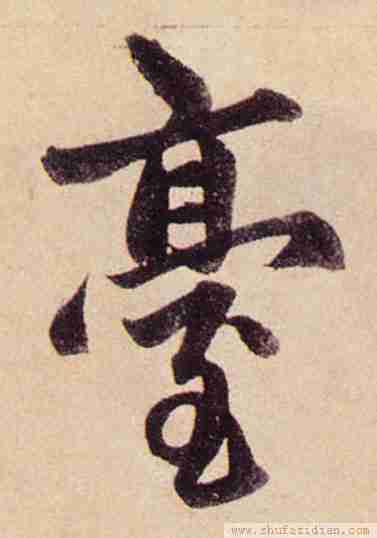 臺
www.shufazidian.com